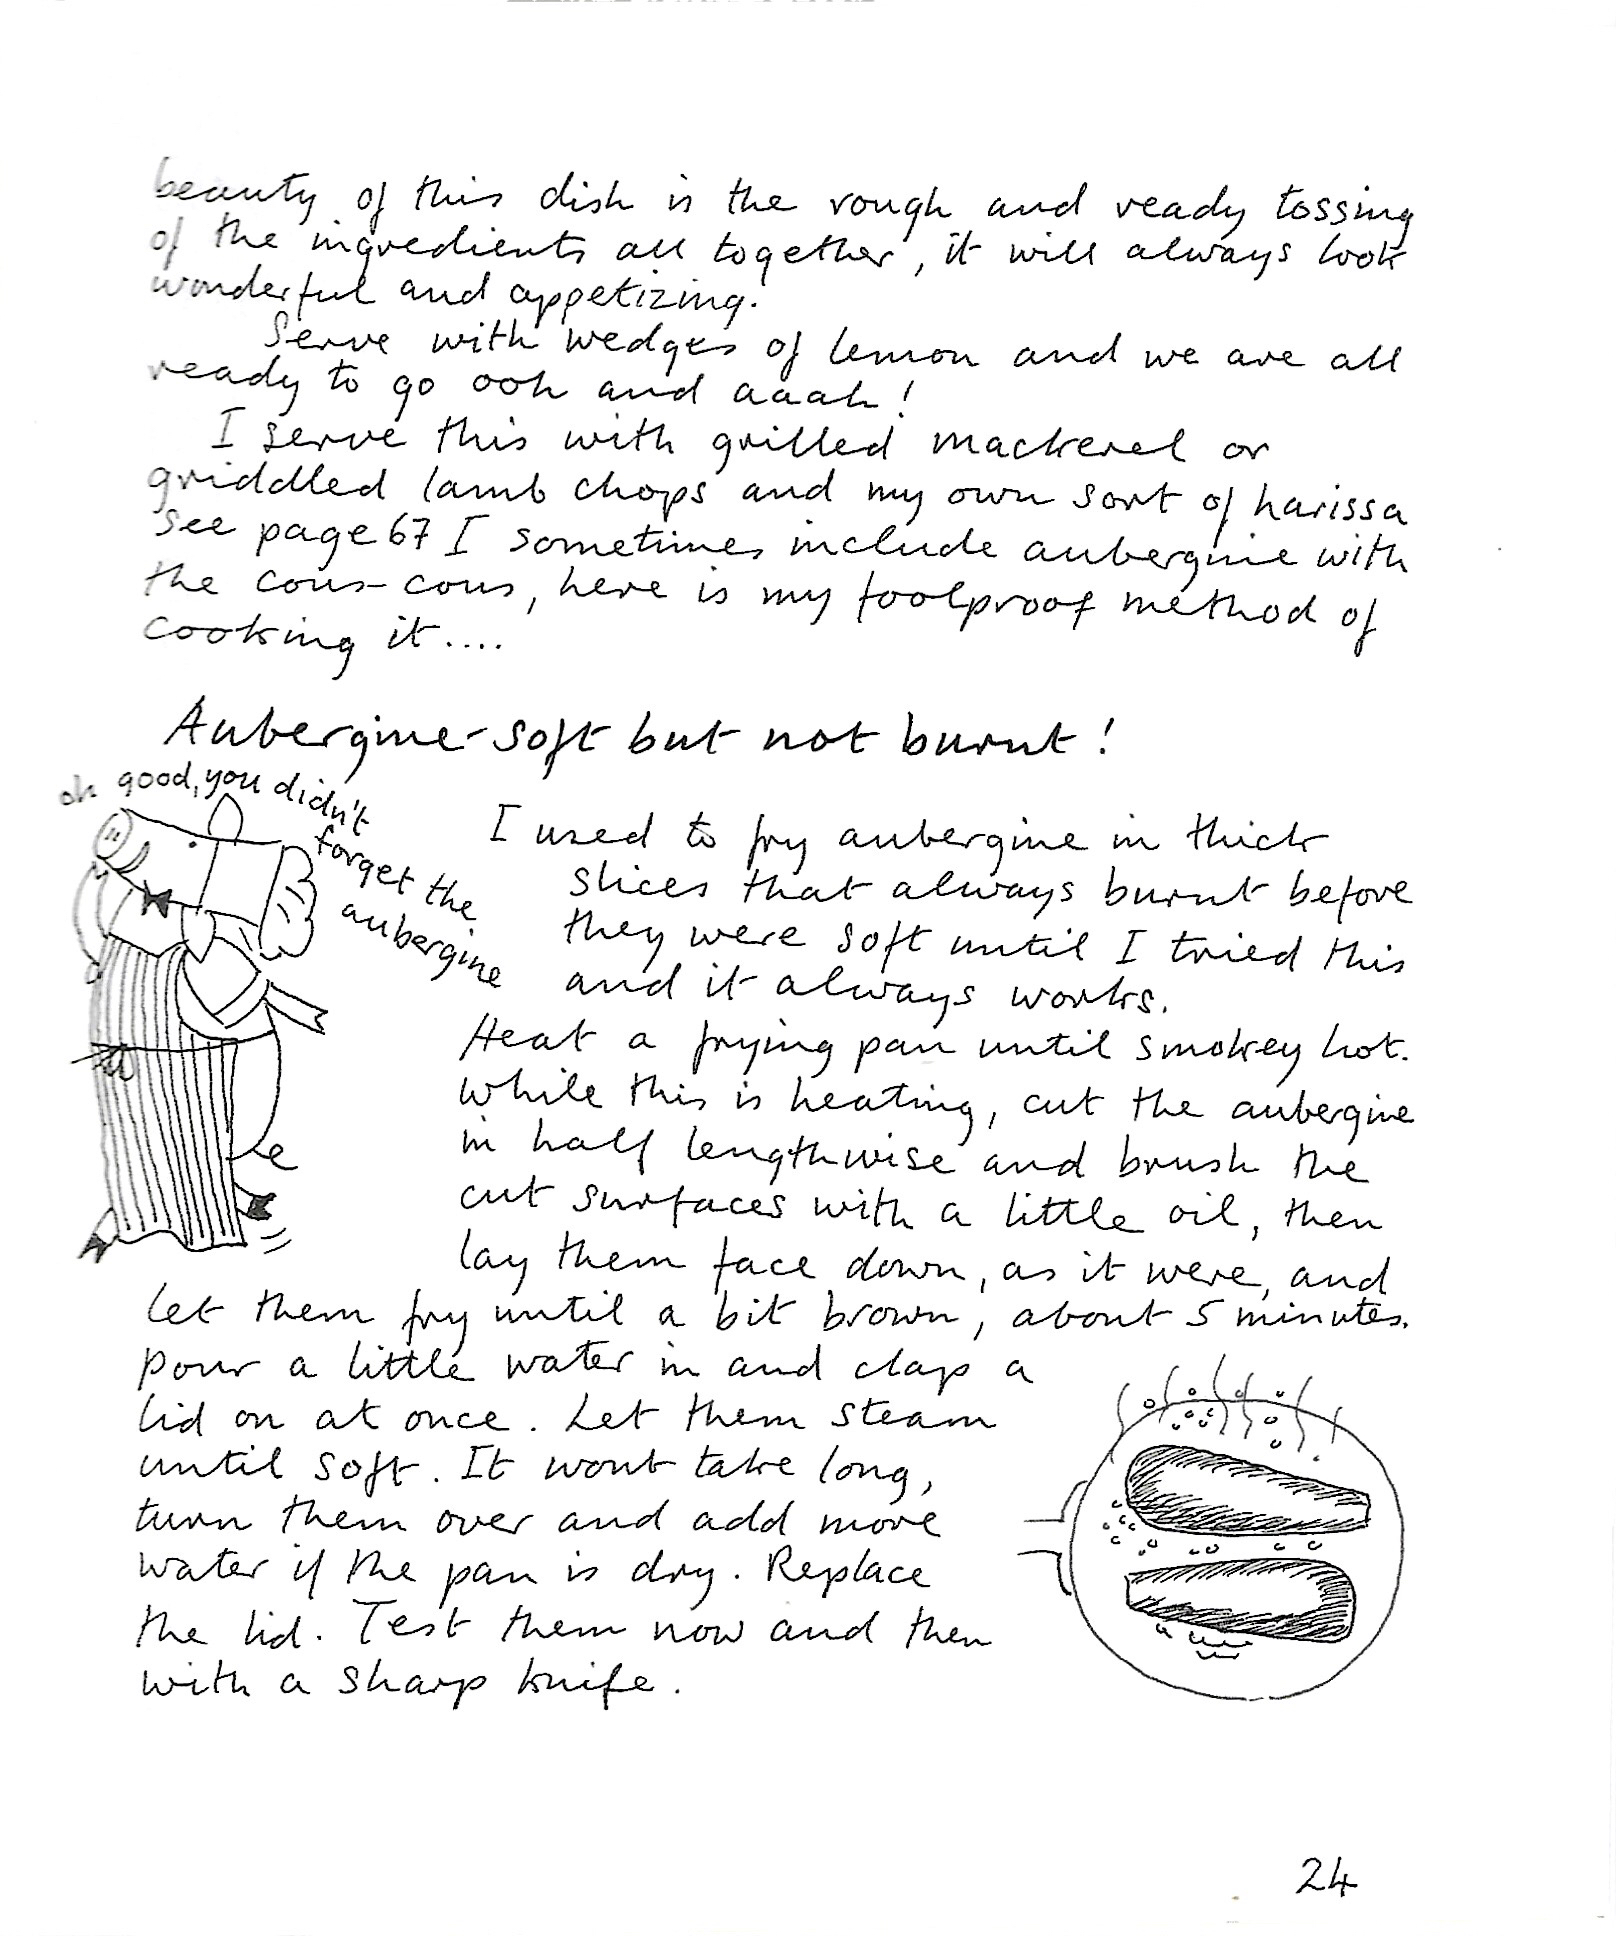 beauty of this dish is the rough and ready tossing
of the ingredients all together, it will always look
wonderful and appetizing.
Serve with wedges of lemon and we are all
ready to go ooh and aaah!
I serve this with grilled mackerel or
griddled lamb chops and my own sort of harissa
see page 67 I sometimes include aubergine with
the cous-cous, here is my foolproof method of
cooking it....
Aubergine - soft but not burnt!
oh good, you didn't
forget the
aubergine
I used to fry aubergine in thick
slices that always burnt before
they were soft until I tried this
and it always works.
Heat a frying pan until smokey hot.
While this is heating, cut the aubergine
in half lengthwise and brush the
cut surfaces with a little oil, then
lay them face down, as it were, and
let them fry until a bit brown, about 5 minutes.
Pour a little water in and clap a
lid on at once. Let them steam
until soft. It wont take long,
turn them over and add more
water if the pan is dry. Replace
the lid. Test them now and then
with a sharp knife.
24